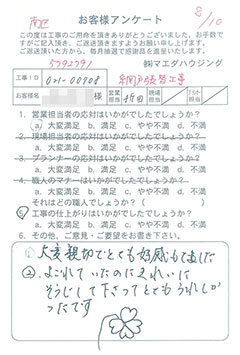 南区
8/10
お客様アンケート
この度は工事のご用命を頂きありがとうございました。お手数で
すがご記入頂き、ご返送頂きますようお願い申し上げます。
ご返送頂いた方に、毎月抽選で感謝品を進呈いたします。
㈱マエダハウジング
工事ID
網戸張替工事
お客様名
様
営業担当
折田
現場担当
/
プランナー担当
1. 営業担当者の応対はいかがでしたでしょうか？
a. 大変満足 b. 満足 c. やや不満 d. 不満
2. 現場担当者の応対はいかがでしたでしょうか？
a. 大変満足 b. 満足 c. やや不満 d. 不満
3. プランナーの応対はいかがでしたでしょうか？
a. 大変満足 b. 満足 c. やや不満 d. 不満
4. 職人のマナーはいかがでしたでしょうか？
a. 大変満足 b. 満足 c. やや不満 d. 不満
それはどの職人でしょうか？（ ）
5. 工事の仕上がりはいかがでしたでしょうか？
a. 大変満足 b. 満足 c. やや不満 d. 不満
6. その他、ご意見・ご要望をお書き下さい。
① 大変親切でとても好感もてました
② よごれていたのにきれいに
そうじして下さってとてもうれしか
ったです